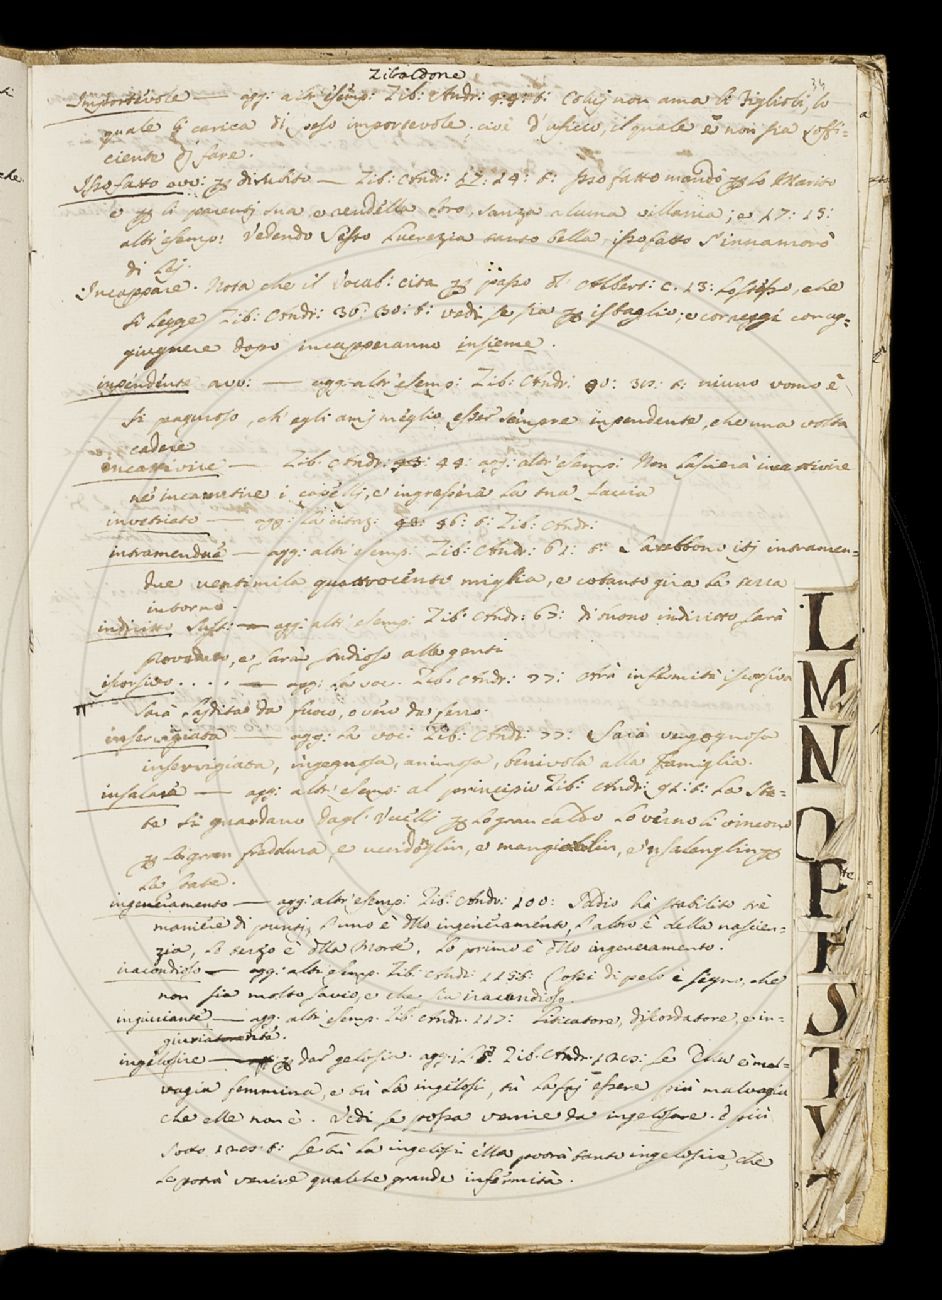 Zibaldone
34
Importevole — agg: altr'esemp: Zib: Andr: 4: Colui non ama li Figlioli, lo
quale gli carica di peso importevole; cioè d'uficio, il quale e' non sia soffi-
ciente di fare.
Issofatto avv: di subito — Zib: Andr: 17: 14: t: Issofatto mandò lo Marito
e li parenti sua e rendélla loro, sanza alcuna villania; e 17: 15:
altr'esemp: Vedendo Sesto Lucrezia tanto bella issofatto s'innamorò
di lei.
Incappare. Nota che il Vocab: cita passo d'Albert: c. 13: lo stesso, che
si legge Zib: Andr: 30: t: vedi se sia isbaglio; e correggi con ag-
giugnere dopo incapperanno insieme.
inpendente avv: — agg: altr'esemp: Zib: Andr: t: niuno uomo è
sì pauroso, ch'egli ami meglio esser sempre inpendente, che una volta
cadere
incattivire — Zib: Andr: 44: agg: altr'esemp: Non lascierà incattivire
né incanutire i capelli, e ingrosserà la sua faccia
invetriato — agg: la citaz: 46: t: Zib: Andr:
intramendue — agg: altr'esemp: Zib: Andr: 61: t: Sarebbono iti intramen-
due ventimila quattrocento miglia, e cotanto gira la terra
intorno.
indiritto Sust: — agg: altr'esemp: Zib: Andr: 63: di buono indiritto sarà
, e sarà studioso alle genti
iscorsivo . . . . — agg: la voc. Zib: Andr: 77: Avrà infermità iscorsiva
Sarà da fuoco, o vero da ferro.
inservigiata — agg: la voc: Zib: Andr: 77: Sarà vergognosa
inservigiata, ingegnosa, animosa, benivola alla Famiglia.
insalare — agg: altr'esemp: al principio Zib: Andr: 91: t: La Sta-
te si guardano dagl'Uccelli lo gran caldo lo verno li vincono
la gran freddura, e uccidoglin, e mangialin, e 'nsalenglin
la state.
ingeneramento — agg: altr'esemp: Zib: Andr: 100: Iddio ha stabilito tre
maniere di punti, l'uno è dello ingeneramento, l'altro è della nascien-
zia, lo terzo è della Morte. Lo primo è dello ingeneramento.
iracondioso — agg: altr'esemp: Zib: Andr: 115t: Cotai di pelo è segno, che
non sia molto savio, e che sia iracondioso.
ingiuriante — agg: altr'esemp: Zib: Andr: 117: Liticatore, discordatore, e in-
giuriatore
ingelosire — dar gelosia. agg: Zib: Andr: 120: Se Ella è mal-
vagia femmina, e tu la ingelosi, tu la fai essere più malvagia
che elle non è. Vedi se possa venire da ingelosare. E più
sotto 120 t: Se tu la ingelosi ella potrà tanto ingelosire, che
le potrà venire qualche grande infermità.
L
M
N
O
P
S
T
V